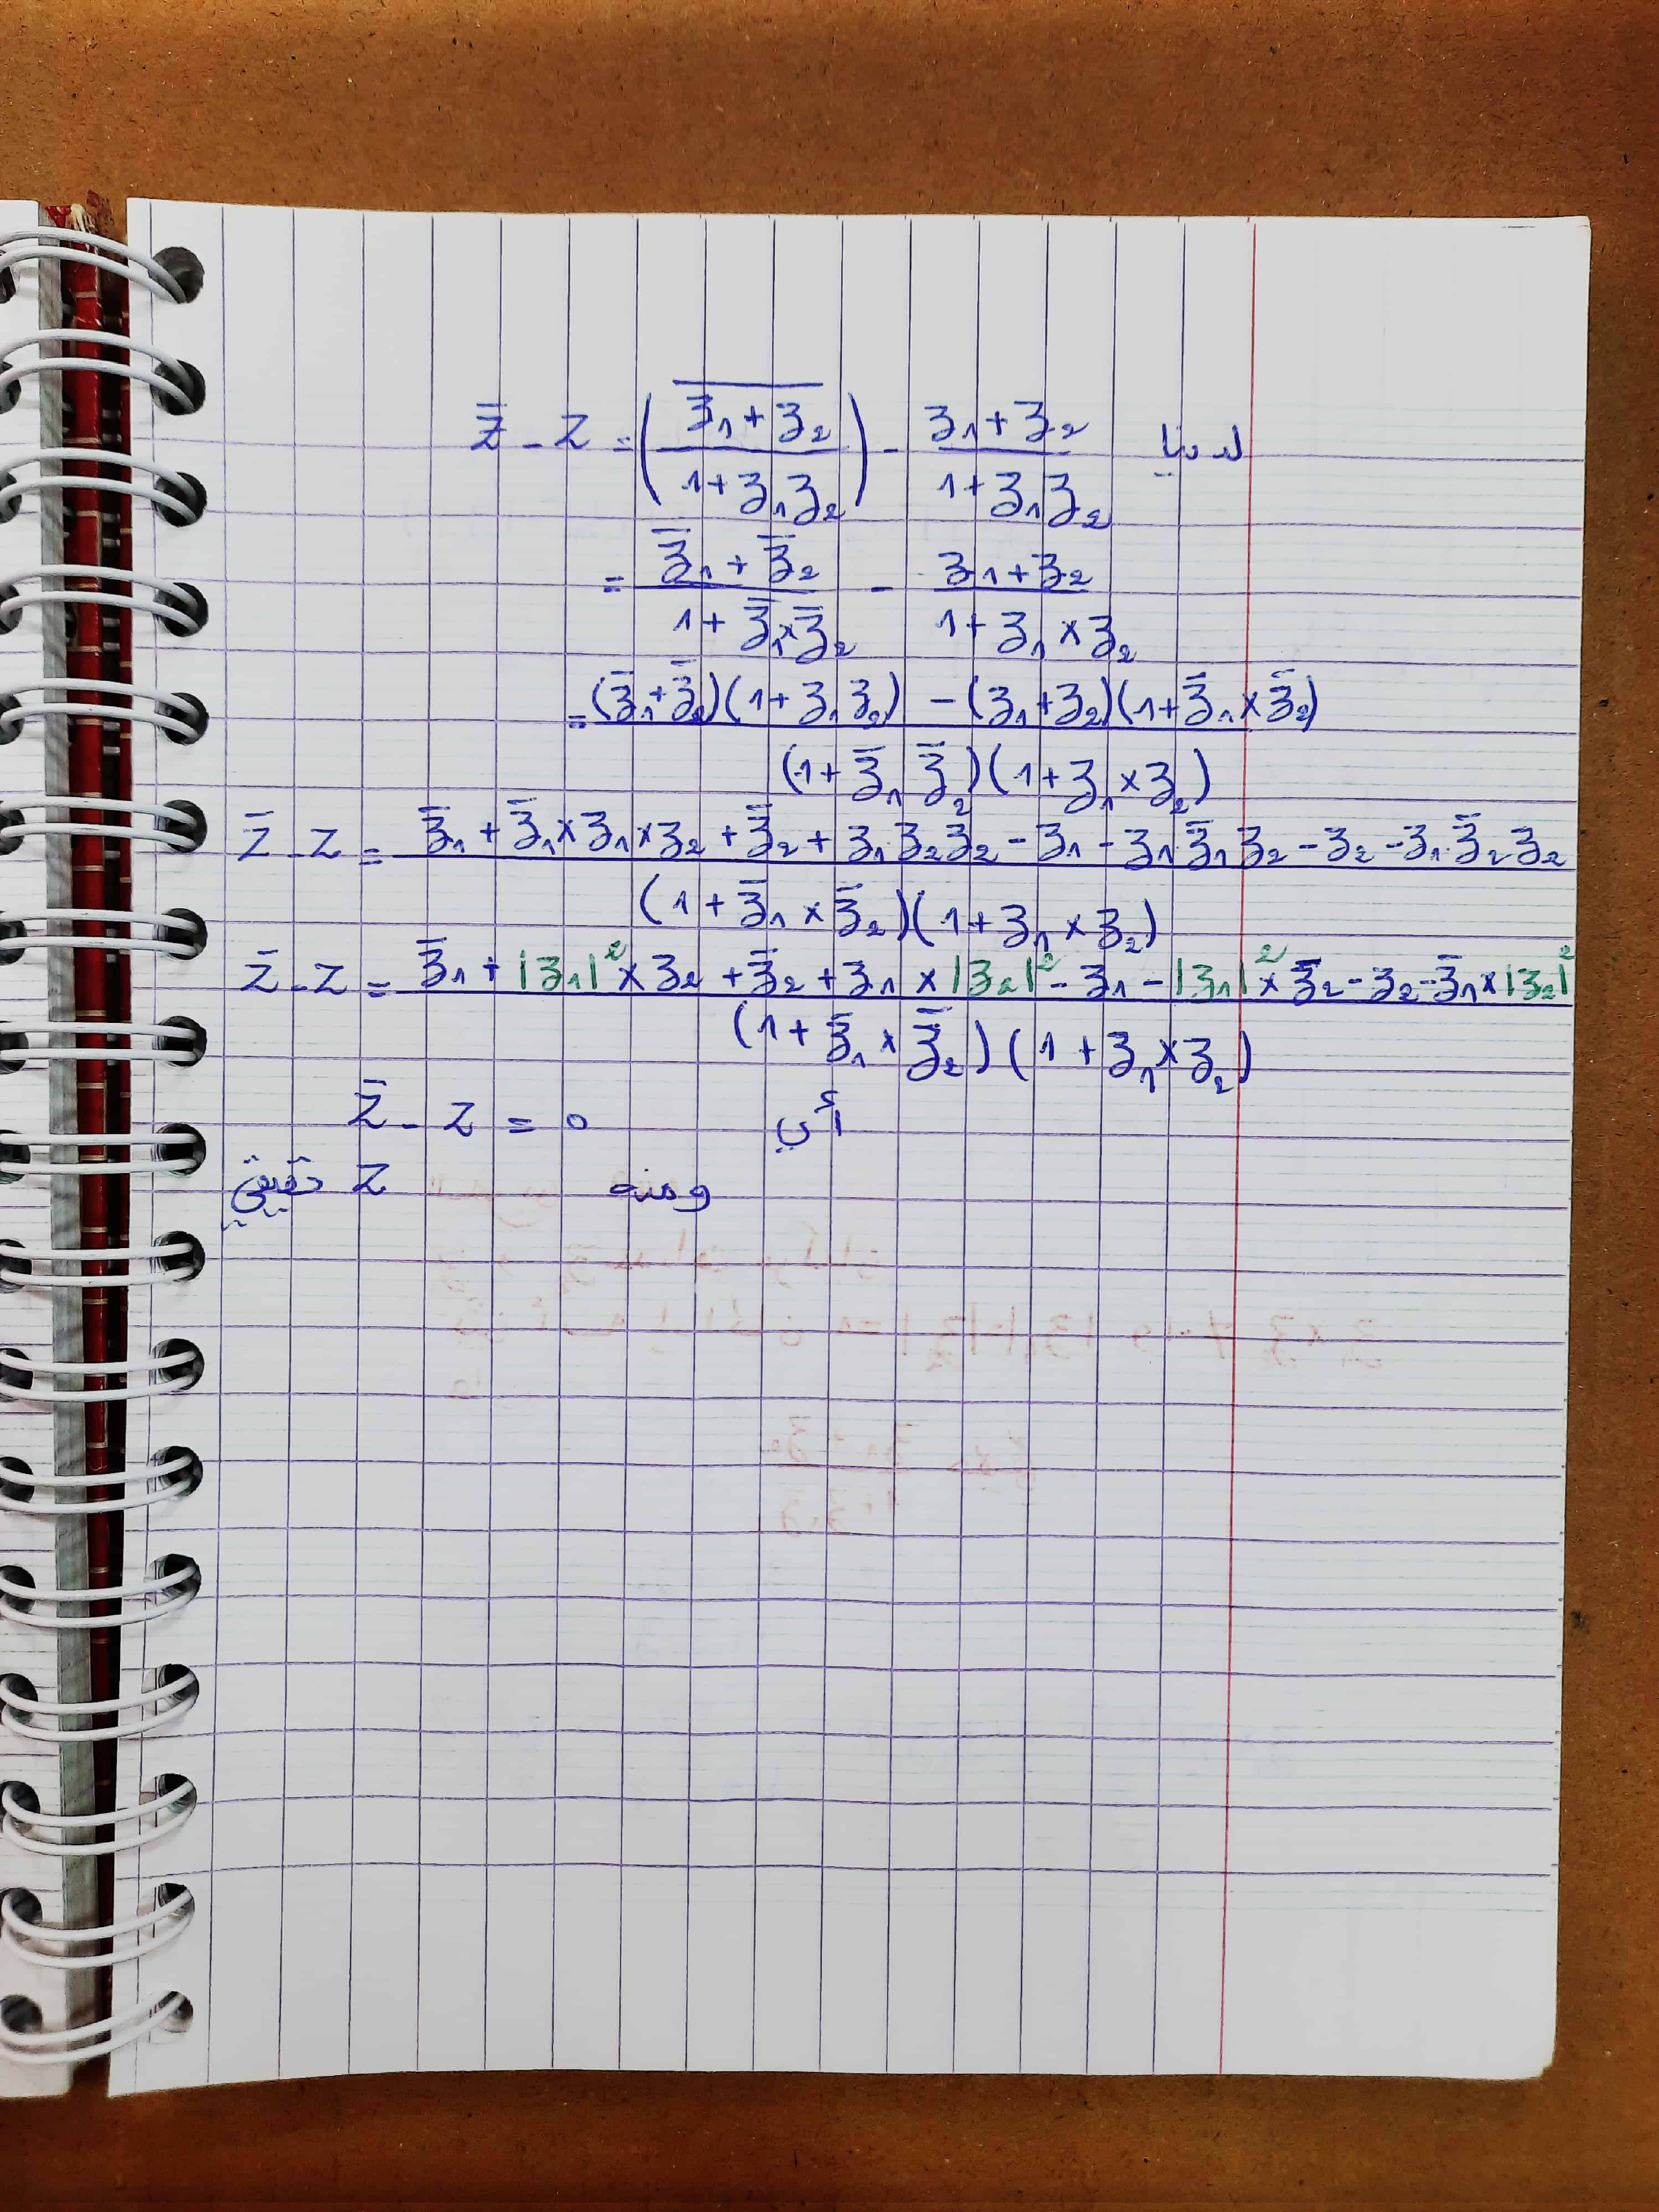 لدينا z̄ - z = ( \overline{z₁+z₂} / 1+z₁z₂ ) - z₁+z₂ / 1+z₁z₂
= z̄₁+z̄₂ / 1+z̄₁×z̄₂ - z₁+z₂ / 1+z₁×z₂
= (z̄₁+z̄₂)(1+z₁z₂) - (z₁+z₂)(1+z̄₁×z̄₂) / (1+z̄₁z̄₂)(1+z₁×z₂)
z̄ - z = z̄₁+z̄₁×z₁×z₂+z̄₂+z₁.z₂z̄₂-z₁-z₁z̄₁z̄₂-z₂-z̄₁.z̄₂.z₂ / (1+z̄₁×z̄₂)(1+z₁×z₂)
z̄ - z = z̄₁+|z₁|²×z₂+z̄₂+z₁×|z₂|²-z₁-|z₁|²×z̄₂-z₂-z̄₁×|z₂|² / (1+z̄₁×z̄₂)(1+z₁×z₂)
أي z̄ - z = 0
ومنه z حقيقي